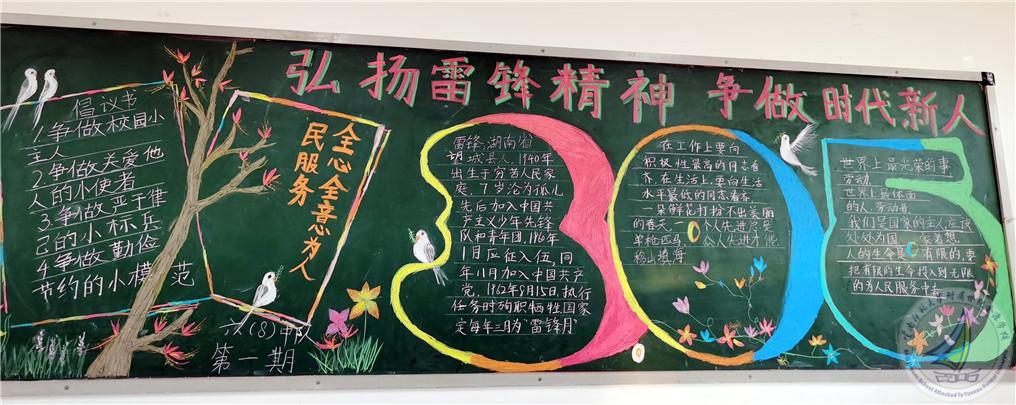 弘扬雷锋精神 争做时代新人
倡议书
1.争做校园小
主人
2.争做关爱他
人的小使者
3.争做严于律
己的小标兵
4.争做勤俭
节约的小模范
全心全意为人
民服务
六(8)中队
第一期
雷锋,湖南省
城县人,1940年
出生于贫苦人民家
庭,7岁沦为孤儿
先后加入中国共
产主义少年先锋
队和青年团,196年
1月应征入伍,同
年11月加入中国共产
党,1962年8月15日,执行
任务时殉职牺牲国家
定每年三月为"雷锋月"
在工作上要向
积极性最高的同志看
齐,在生活上,要向生活
水平最低的同志看齐
一朵鲜花打扮不出美丽
的春天,一个人先进
单枪匹马,众人先进才能
移山填海
世界上最光荣的事
劳动
世界上最体面
的人,劳动者
我们是国家的主人,应该
处处为国家着想
人的生命是有限的,要
把有限的生命投入到无限
的为人民服务中去